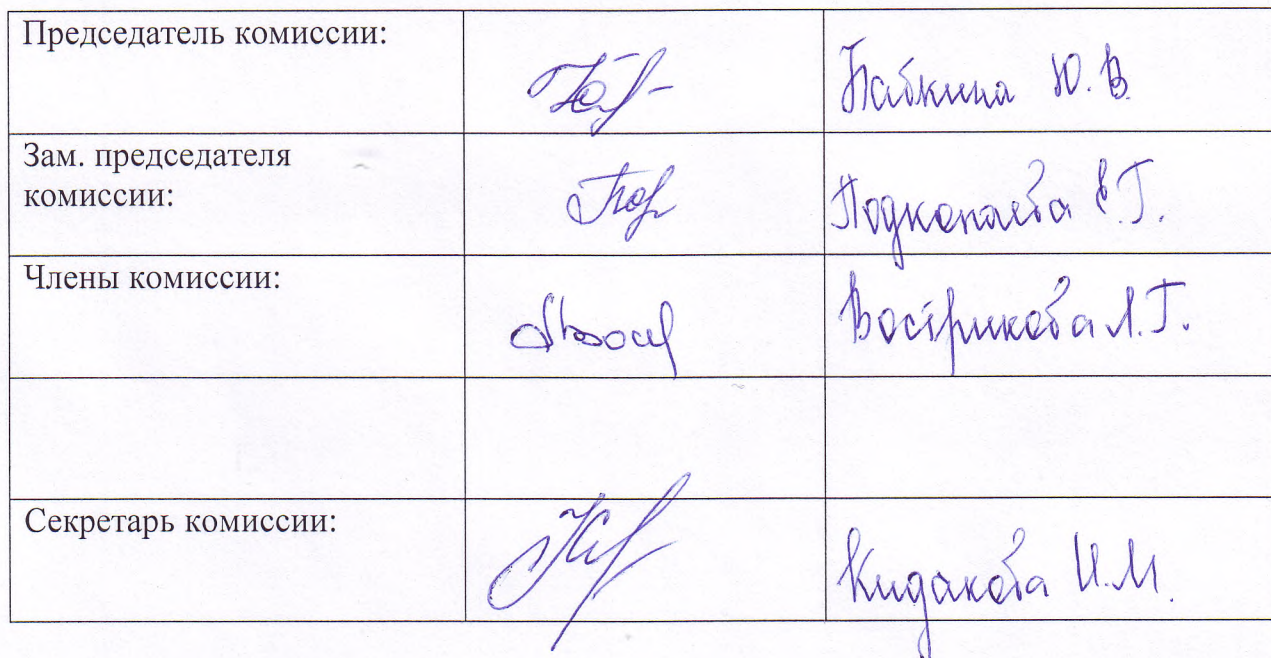 Председатель комиссии:
Бабкина Ю.В.
Зам. председателя
комиссии:
Подкопаева Е.Г.
Члены комиссии:
Вострикова Л.Г.
Секретарь комиссии:
Кидакова И.М.